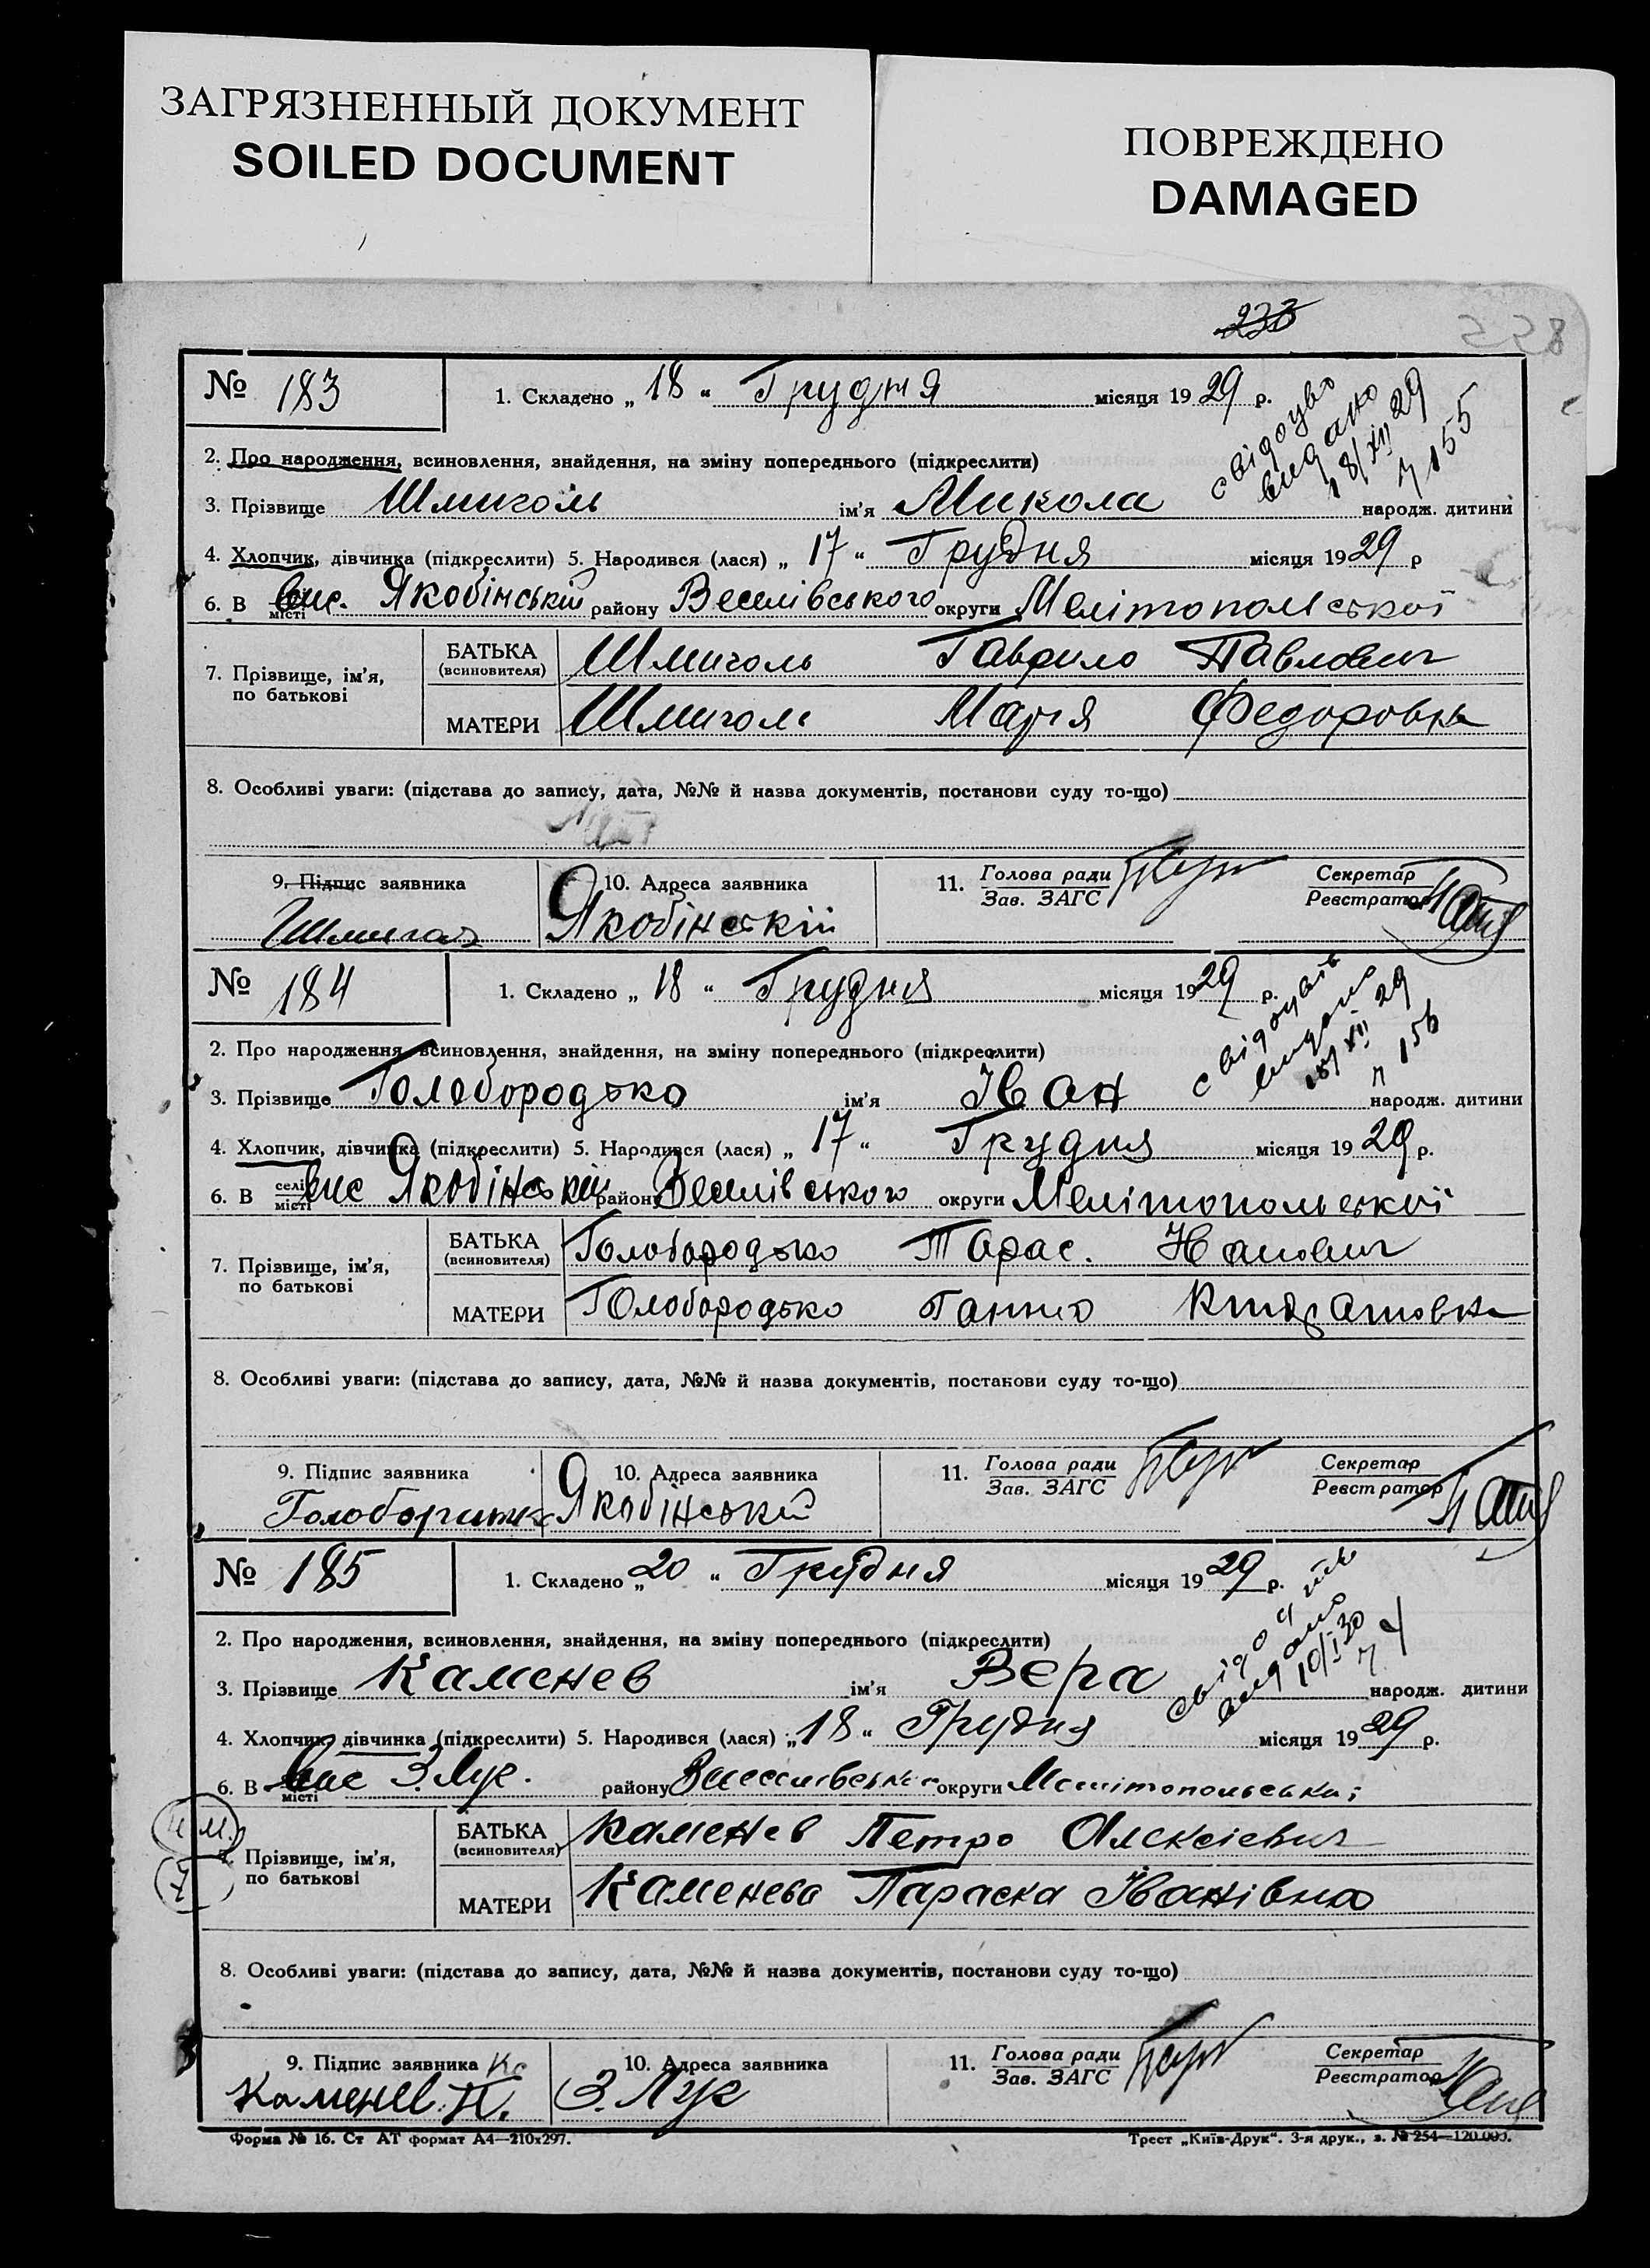 ЗАГРЯЗНЕННЫЙ ДОКУМЕНТ
SOILED DOCUMENT
ПОВРЕЖДЕНО
DAMAGED
233
№ 183 1. Складено „ 18 “ Грудня місяця 1929 р.
свідоцво
видано
18/XII 29
155
2. Про народження, всиновлення, знайдення, на зміну попереднього (підкреслити)
3. Прізвище Шмиголь ім'я Микола народж. дитини
4. Хлопчик, дівчинка (підкреслити) 5. Народився (лася) „ 17 “ Грудня місяця 1929 р
6. В вис. місті Якобінській району Веселівського округи Мелітопольської
7. Прізвище, ім'я, по батькові
БАТЬКА (всиновителя) Шмиголь Гаврило Павлович
МАТЕРИ Шмиголь Марія Федоровна
8. Особливі уваги: (підстава до запису, дата, №№ й назва документів, постанови суду то-що)
9. Підпис заявника 10. Адреса заявника 11. Голова ради Зав. ЗАГС Секретар Реєстратор
Якобінскій
№ 184 1. Складено „ 18 “ Грудня місяця 1929 р.
видано
XII 29
156
2. Про народження, всиновлення, знайдення, на зміну попереднього (підкреслити)
3. Прізвище Голобородько ім'я Іван народж. дитини
4. Хлопчик, дівчинка (підкреслити) 5. Народився (лася) „ 17 “ Грудня місяця 1929 р.
6. В селі місті вис Якобінській району Веселівського округи Мелітопольської
7. Прізвище, ім'я, по батькові
БАТЬКА (всиновителя) Голобородько Тарас
МАТЕРИ Голобородько Ганна
8. Особливі уваги: (підстава до запису, дата, №№ й назва документів, постанови суду то-що)
9. Підпис заявника 10. Адреса заявника 11. Голова ради Зав. ЗАГС Секретар Реєстратор
Якобінській
№ 185 1. Складено „ 20 “ Грудня місяця 1929 р.
видано
10/I 30
2. Про народження, всиновлення, знайдення, на зміну попереднього (підкреслити)
3. Прізвище Каменев ім'я Вера народж. дитини
4. Хлопчик, дівчинка (підкреслити) 5. Народився (лася) „ 18 “ Грудня місяця 1929 р.
6. В вис місті З. Луг. району округи Мелітопольської
7. Прізвище, ім'я, по батькові
БАТЬКА (всиновителя) Каменев Петро Алексієвич
МАТЕРИ Каменева Параска Іванівна
8. Особливі уваги: (підстава до запису, дата, №№ й назва документів, постанови суду то-що)
9. Підпис заявника 10. Адреса заявника 11. Голова ради Зав. ЗАГС Секретар Реєстратор
Каменев П. З. Луг
Форма № 16. Ст АТ формат А4—210x297. Трест „Київ-Друк“. 3-я друк., з. № 254—120.000.